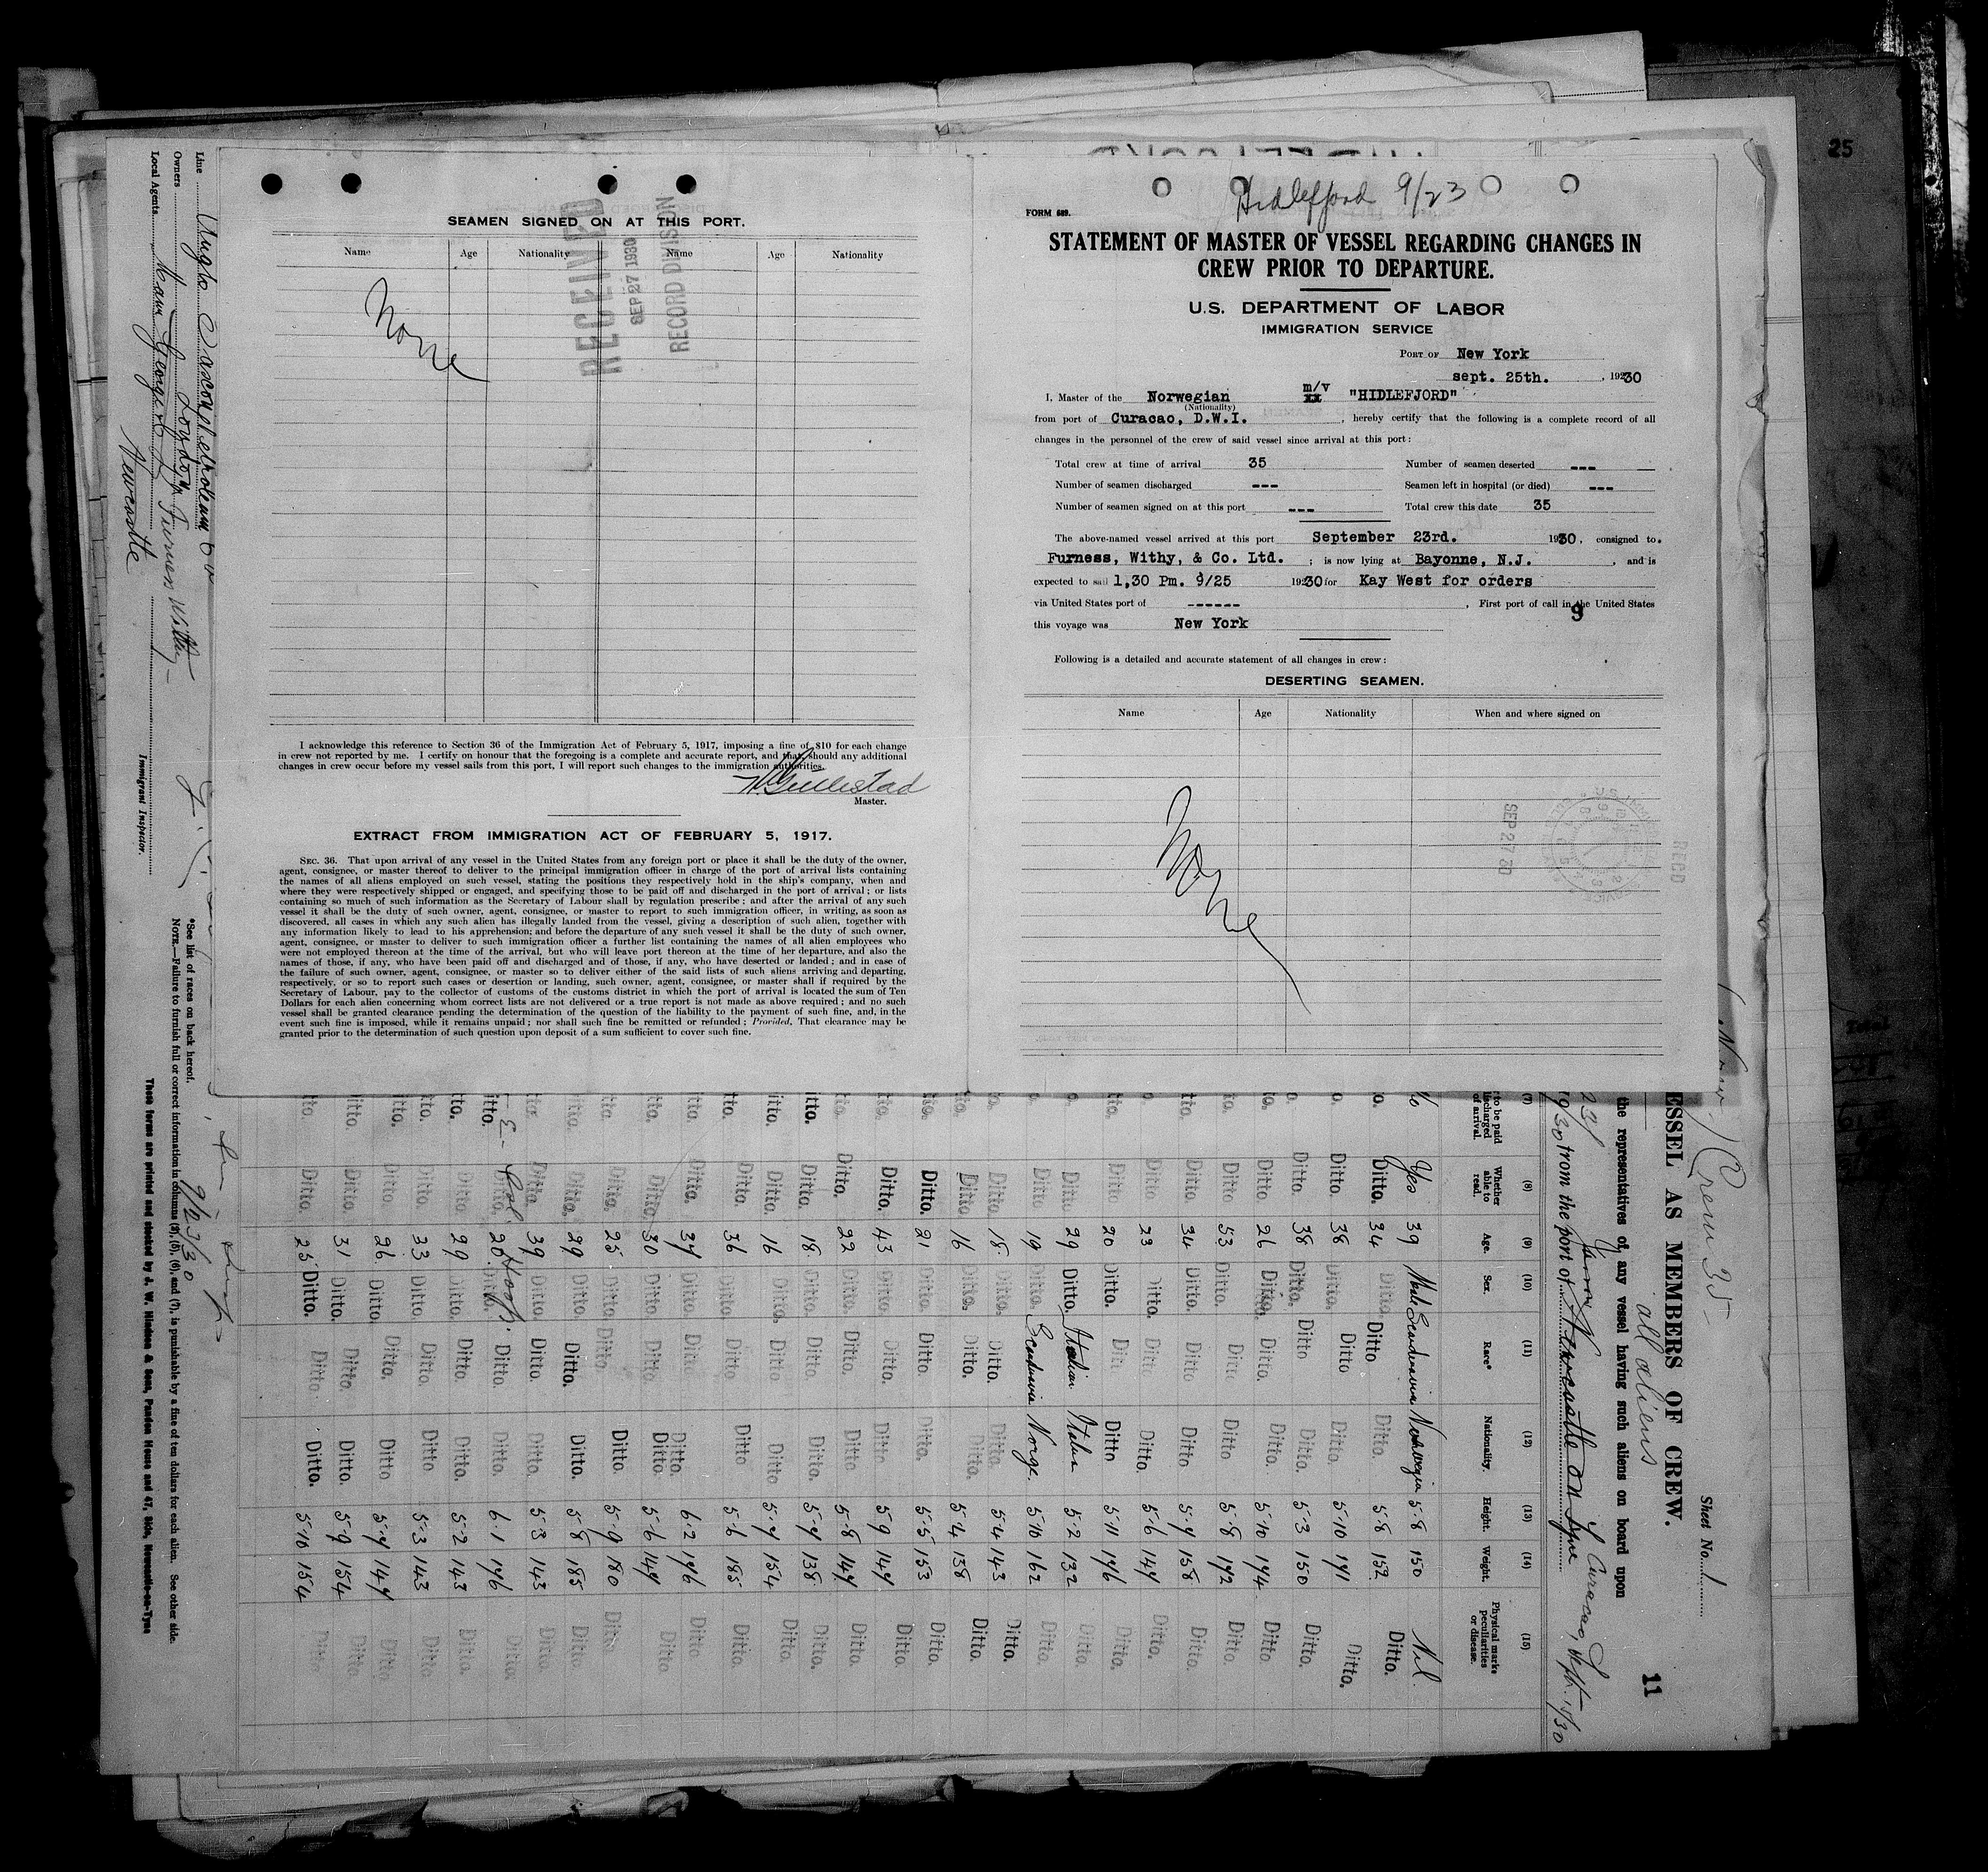 25
Hidlefjord 9/23
FORM 689.
STATEMENT OF MASTER OF VESSEL REGARDING CHANGES IN
CREW PRIOR TO DEPARTURE.
U.S. DEPARTMENT OF LABOR
IMMIGRATION SERVICE
PORT OF New York
sept. 25th. , 19230
I, Master of the Norwegian m/v xx "HIDLEFJORD"
(Nationality)
from port of Curacao, D.W.I. , hereby certify that the following is a complete record of all
changes in the personnel of the crew of said vessel since arrival at this port:
Total crew at time of arrival 35 Number of seamen deserted ---
Number of seamen discharged --- Seamen left in hospital (or died) ---
Number of seamen signed on at this port --- Total crew this date 35
The above-named vessel arrived at this port September 23rd. 1930, consigned to.
Furness, Withy, & Co. Ltd. ; is now lying at Bayonne, N.J. , and is
expected to sail 1,30 Pm. 9/25 19230 for Kay West for orders
via United States port of ------ , First port of call in the United States
9
this voyage was New York
Following is a detailed and accurate statement of all changes in crew:
DESERTING SEAMEN.
Name Age Nationality When and where signed on
None
SEP 27 30
REC'D
SEAMEN SIGNED ON AT THIS PORT.
Name Age Nationality Name Age Nationality
None
RECEIVED
SEP 27 1930
RECORD DIVISION
I acknowledge this reference to Section 36 of the Immigration Act of February 5, 1917, imposing a fine of $10 for each change
in crew not reported by me. I certify on honour that the foregoing is a complete and accurate report, and that, should any additional
changes in crew occur before my vessel sails from this port, I will report such changes to the immigration authorities.
Master.
EXTRACT FROM IMMIGRATION ACT OF FEBRUARY 5, 1917.
SEC. 36. That upon arrival of any vessel in the United States from any foreign port or place it shall be the duty of the owner,
agent, consignee, or master thereof to deliver to the principal immigration officer in charge of the port of arrival lists containing
the names of all aliens employed on such vessel, stating the positions they respectively hold in the ship's company, when and
where they were respectively shipped or engaged, and specifying those to be paid off and discharged in the port of arrival; or lists
containing so much of such information as the Secretary of Labour shall by regulation prescribe; and after the arrival of any such
vessel it shall be the duty of such owner, agent, consignee, or master to report to such immigration officer, in writing, as soon as
discovered, all cases in which any such alien has illegally landed from the vessel, giving a description of such alien, together with
any information likely to lead to his apprehension; and before the departure of any such vessel it shall be the duty of such owner,
agent, consignee, or master to deliver to such immigration officer a further list containing the names of all alien employees who
were not employed thereon at the time of the arrival, but who will leave port thereon at the time of her departure, and also the
names of those, if any, who have been paid off and discharged and of those, if any, who have deserted or landed; and in case of
the failure of such owner, agent, consignee, or master so to deliver either of the said lists of such aliens arriving and departing,
respectively, or so to report such cases or desertion or landing, such owner, agent, consignee, or master shall if required by the
Secretary of Labour, pay to the collector of customs of the customs district in which the port of arrival is located the sum of Ten
Dollars for each alien concerning whom correct lists are not delivered or a true report is not made as above required; and no such
vessel shall be granted clearance pending the determination of the question of the liability to the payment of such fine, and, in the
event such fine is imposed, while it remains unpaid; nor shall such fine be remitted or refunded; Provided, That clearance may be
granted prior to the determination of such question upon deposit of a sum sufficient to cover such fine.
Sheet No. 1
11
Crew 35
ESSEL AS MEMBERS OF CREW.
all aliens
the representatives of any vessel having such aliens on board upon
23/ 1930 from the port of Newcastle on Tyne Curacao, Sept. 15/30
(7) to be paid discharged of arrival. (8) Whether able to read. (9) Age. (10) Sex (11) Race* (12) Nationality. (13) Height. (14) Weight. (15) Physical marks peculiarities or disease.
No Yes 39 Male Scandinavian Norwegian 5-8 150 Nil
Ditto. 34 Ditto. Ditto Ditto. 5-8 152 Ditto.
Ditto. 38 Ditto. Ditto Ditto. 5-10 191 Ditto.
Ditto 38 Ditto. Ditto Ditto. 5-3 150 Ditto.
Ditto. 26 Ditto. Ditto. Ditto. 5-10 194 Ditto.
Ditto 53 Ditto. Ditto Ditto 5-8 192 Ditto.
Ditto. 34 Ditto. Ditto Ditto 5-4 158 Ditto.
Ditto. 23 Ditto. Ditto Ditto. 5-6 144 Ditto.
Ditto 20 Ditto. Ditto 5-11 146 Ditto.
Ditto 29 Ditto. Italian 5-2 132 Ditto.
Ditto 19 Ditto. Norge. 5-10 162 Ditto.
Ditto 18 Ditto. Ditto. Ditto. 5-4 143 Ditto.
Ditto 16 Ditto. Ditto. Ditto. 5-4 138 Ditto.
Ditto. 21 Ditto. Ditto. Ditto. 5-5 153 Ditto.
Ditto. 43 Ditto. Ditto. Ditto. 5-9 144 Ditto.
Ditto. 22 Ditto. Ditto. Ditto. 5-8 144 Ditto.
Ditto. 18 Ditto. Ditto. Ditto. 5-4 138 Ditto.
Ditto. 16 Ditto. Ditto. Ditto. 5-4 154 Ditto.
Ditto. 36 Ditto. Ditto. Ditto 5-6 185 Ditto.
Ditto. 34 Ditto. Ditto Ditto. 6-2 196 Ditto
Ditto. 30 Ditto. Ditto. Ditto. 5-6 144 Ditto
Ditto. 25 Ditto. Ditto Ditto 5-9 180 Ditto
Ditto. 29 Ditto. Ditto. Ditto. 5-8 185 Ditto
Ditto. 39 Ditto. Ditto. Ditto. 5-3 143 Ditto.
Ditto. 20 Ditto. Ditto. Ditto. 6-1 196 Ditto.
Ditto. 29 Ditto. Ditto. Ditto. 5-2 143 Ditto.
Ditto. 33 Ditto. Ditto. Ditto 5-3 143 Ditto.
Ditto. 26 Ditto. Ditto. Ditto 5-4 144 Ditto.
Ditto. 31 Ditto. Ditto. Ditto. 5-9 154 Ditto.
Ditto. 25 Ditto. Ditto. Ditto. 5-10 154 Ditto
Line Anglo Saxon Petroleum Co
Owners London
Local Agents Furness Withy
Newcastle
Immigrant Inspector.
9/23/30
*See list of races on back hereof.
NOTE.—Failure to furnish full or correct information in columns (3), (5), (6), and (7), is punishable by a fine of ten dollars for each alien. See other side.
These forms are printed and stocked by J. W. Hindson & Sons, Pandon House and 47, Side, Newcastle-on-Tyne